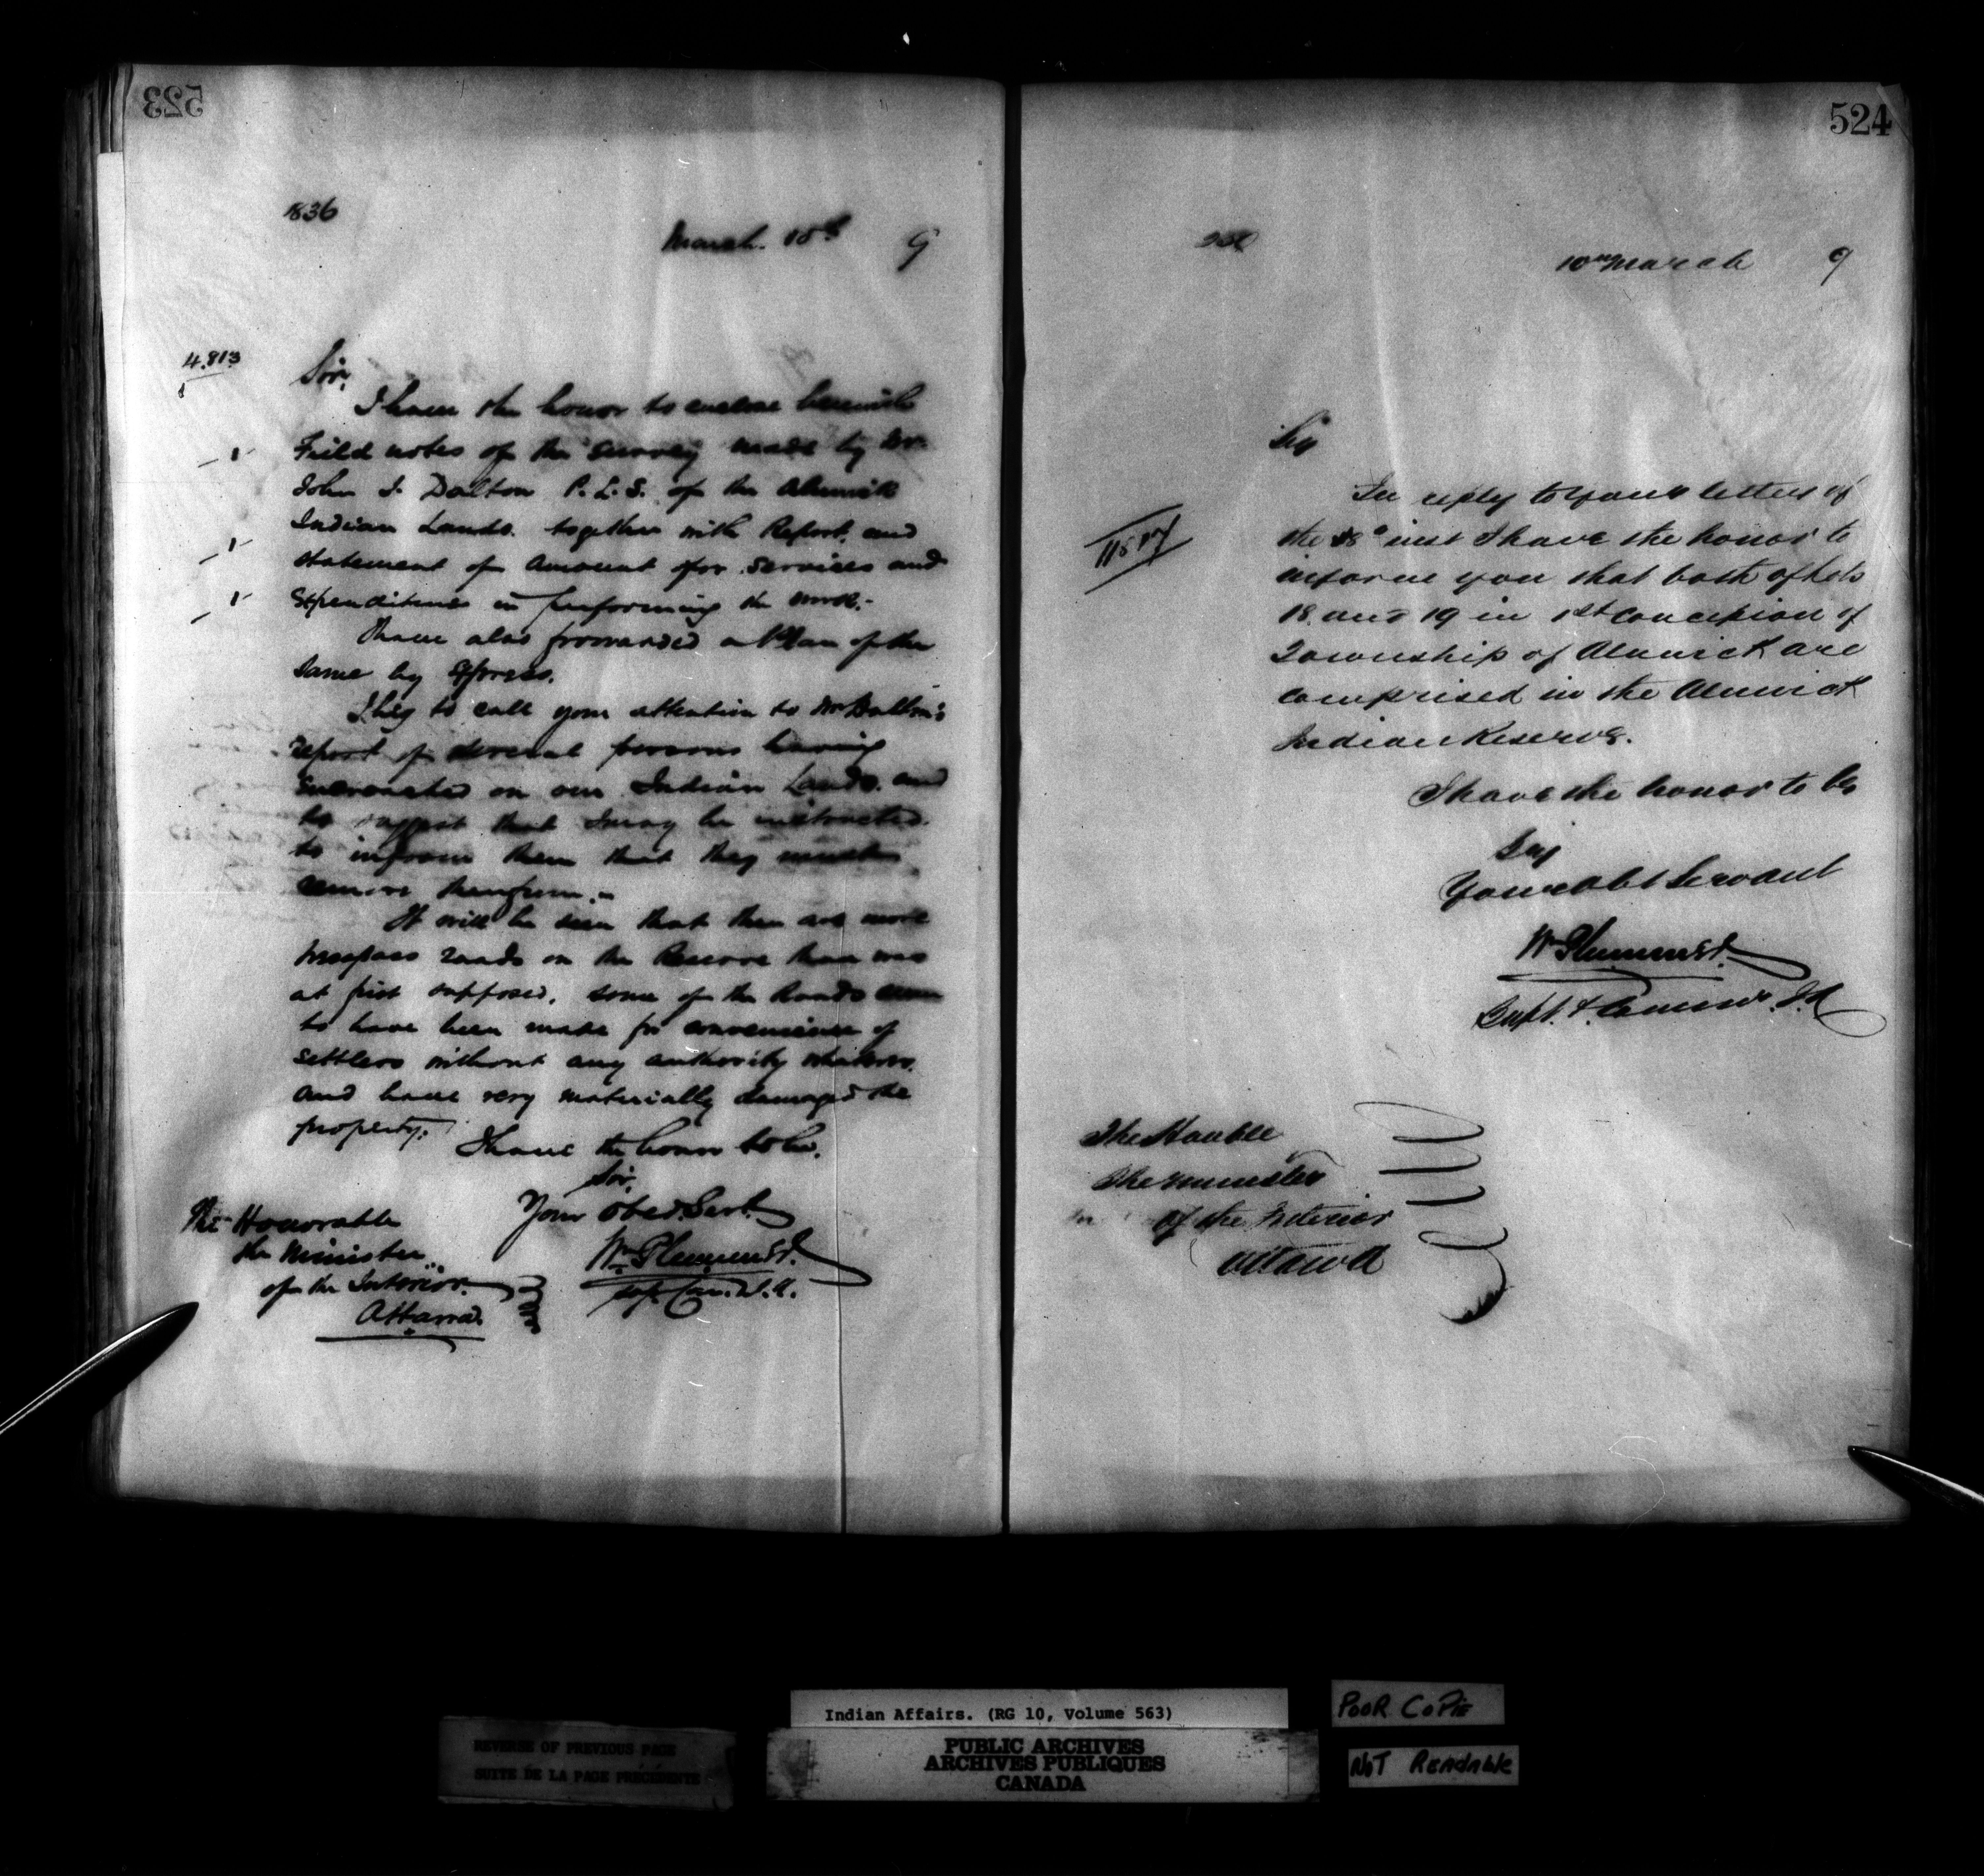 523
836
March 10th 9
4.813
Sir,
I have the honor to enclose herewith
Field notes of the survey made by Mr.
John J. Dalton P.L.S. of the Alnwick
Indian Lands. together with Report, and
statement of amount for services and
Expenditures in performing the work.-
I have also forwarded a Plan of the
same by Express.
I beg to call your attention to Mr Dalton's
report of several persons having
encroached on our Indian Lands. and
to suggest that I may be instructed
to inform them that they must
remove therefrom.
It will be seen that there are more
trespass roads on the Reserve than was
at first supposed, some of the Roads seem
to have been made for convenience of
settlers without any authority whatever.
and have very materially damaged the
property.
I have the honor to be.
Sir,
Your Obed. Servt.
Wm Plummer.
Sup. Com. I.A.
The Honorable
the Minister
of the Interior.
Ottawa.
524
10th March 9
Sir
In reply to your letter of
the 8th inst I have the honor to
inform you that both of lots
18 and 19 in 1st Concession of
Township of Alnwick are
comprised in the Alnwick
Indian Reserve.
I have the honor to be
Sir
Your obt Servant
Wm Plummer.
Supt. & Commr. I.A
The Honble
The Minister
of the Interior
Ottawa
Indian Affairs. (RG 10, Volume 563)
PUBLIC ARCHIVES
ARCHIVES PUBLIQUES
CANADA
REVERSE OF PREVIOUS PAGE
SUITE DE LA PAGE PRÉCÉDENTE
POOR COPIE
NOT READABLE